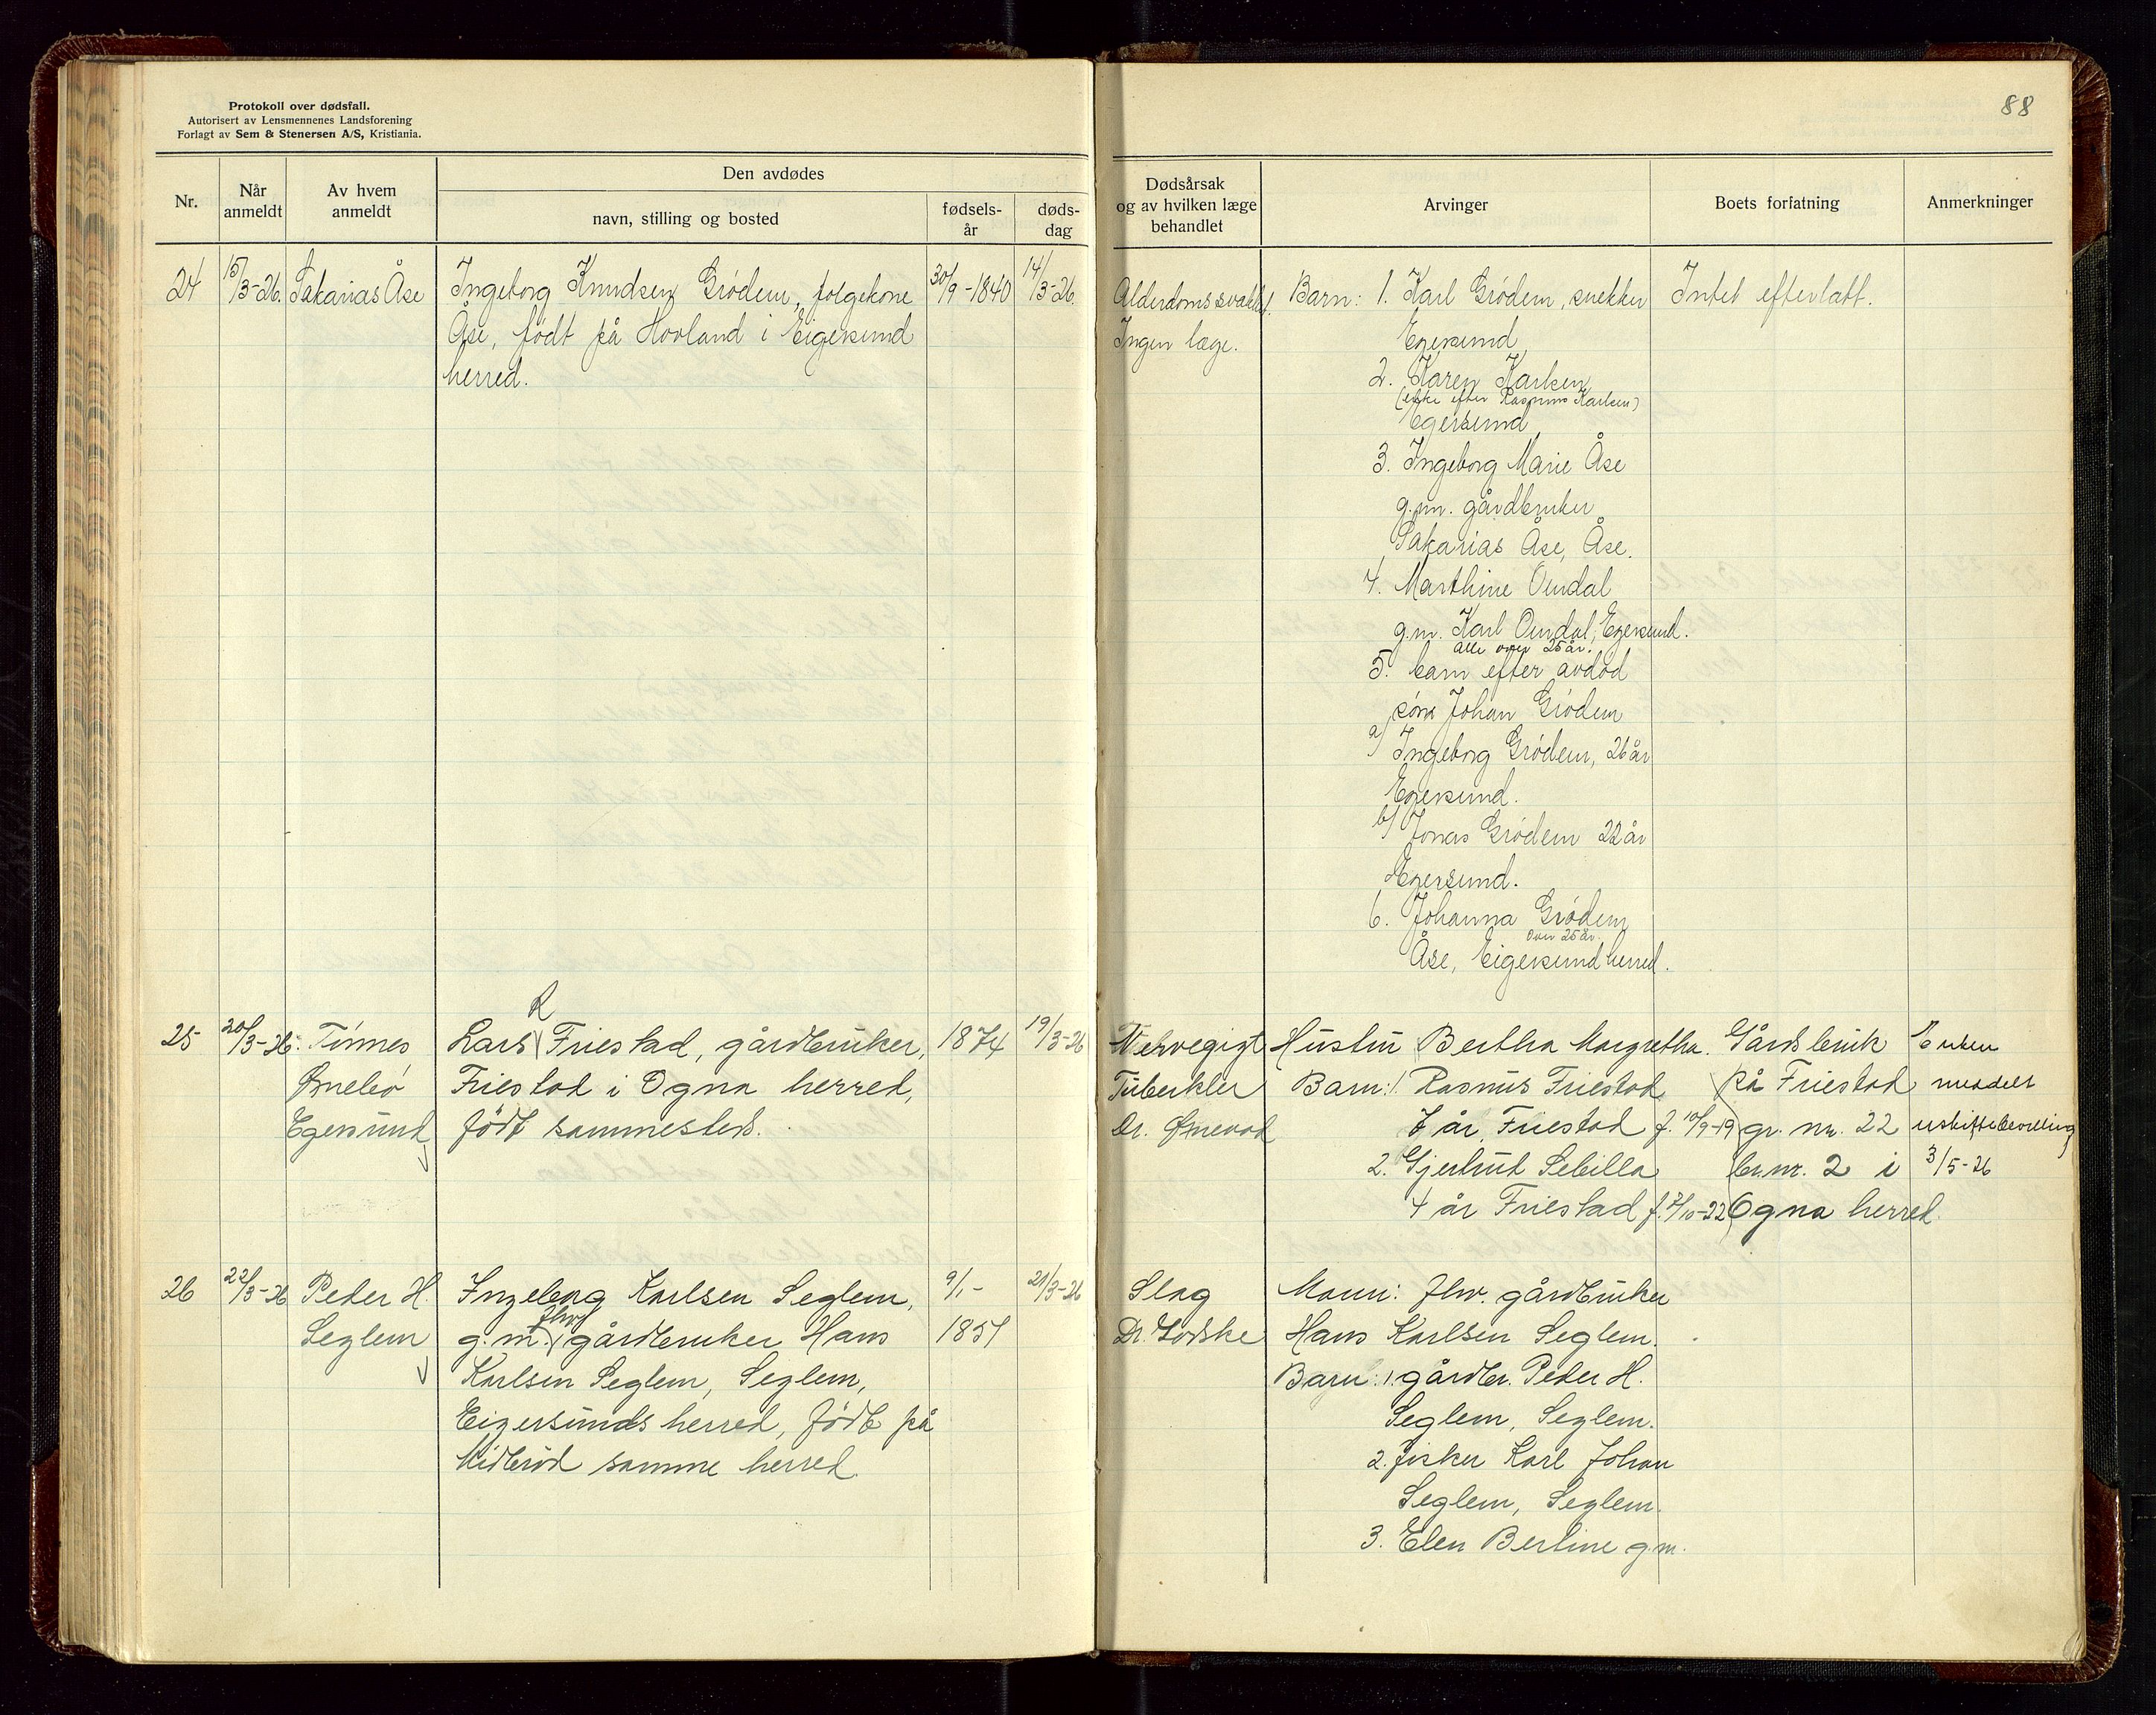 Protokoll over dødsfall.
Autorisert av Lensmennenes Landsforening
Forlagt av Sem & Stenersen A/S, Kristiania.
88
Nr.
Når anmeldt
Av hvem anmeldt
Den avdødes
navn, stilling og bosted
fødsels-
år
døds-
dag
Dødsårsak
og av hvilken læge
behandlet
Arvinger
Boets forfatning
Anmerkninger
24
15/3-26.
Sakarias Åse
Ingeborg Knudsen Grødem, folgekone
Åse, født på Hovland i Eigersund
herred.
30/9-1840
14/3-26.
Alderdomssvakhet.
Ingen læge.
Barn: 1. Karl Grødem, snekker
Egersund
2. Karen Karlsen
(enke efter Rasmus Karlsen)
Egersund
3. Ingeborg Marie Åse
g.m. gårdbruker
Sakarias Åse, Åse.
4. Marthine Omdal
g.m. Karl Omdal, Egersund.
alle over 25 år.
5. barn efter avdød
sønn Johan Grødem
a) Ingeborg Grødem, 26 år
Egersund.
b) Jonas Grødem 22 år
Egersund.
6. Johanna Grødem
over 25 år.
Åse, Eigersund herred.
Intet efterlatt.
25
20/3-26.
Tønnes
Ørneland
Egersund
R
Lars Friestad, gårdbruker,
Friestad i Ogna herred,
født sammesteds.
1874
19/3-26
Nervegigt
Tuberkler
Dr.
Hustru Bertha Margretha.
Barn: 1. Rasmus Friestad
7 år, Friestad f. 10/9-19
2. Gjertrud Sebilla
4 år Friestad f. 7/10-22
Gårdsbruk
på Friestad
gr. nr. 22
br.nr. 2 i
Ogna herred.
Enken
meddelt
uskiftebevilling
3/5-26
26
22/3-26
Peder H.
Seglem
Ingeborg Karlsen Seglem,
fhv
g.m. gårdbruker Hans
Karlsen Seglem, Seglem,
Eigersunds herred, født på
Midbrød samme herred
9/1-
1857
21/3-26
Slag
Dr. Godske
Mann: fhv. gårdbruker
Hans Karlsen Seglem.
Barn: 1. gårdbr. Peder H.
Seglem, Seglem.
2. fisker Karl Johan
Seglem, Seglem.
3. Elen Bertine g.m.